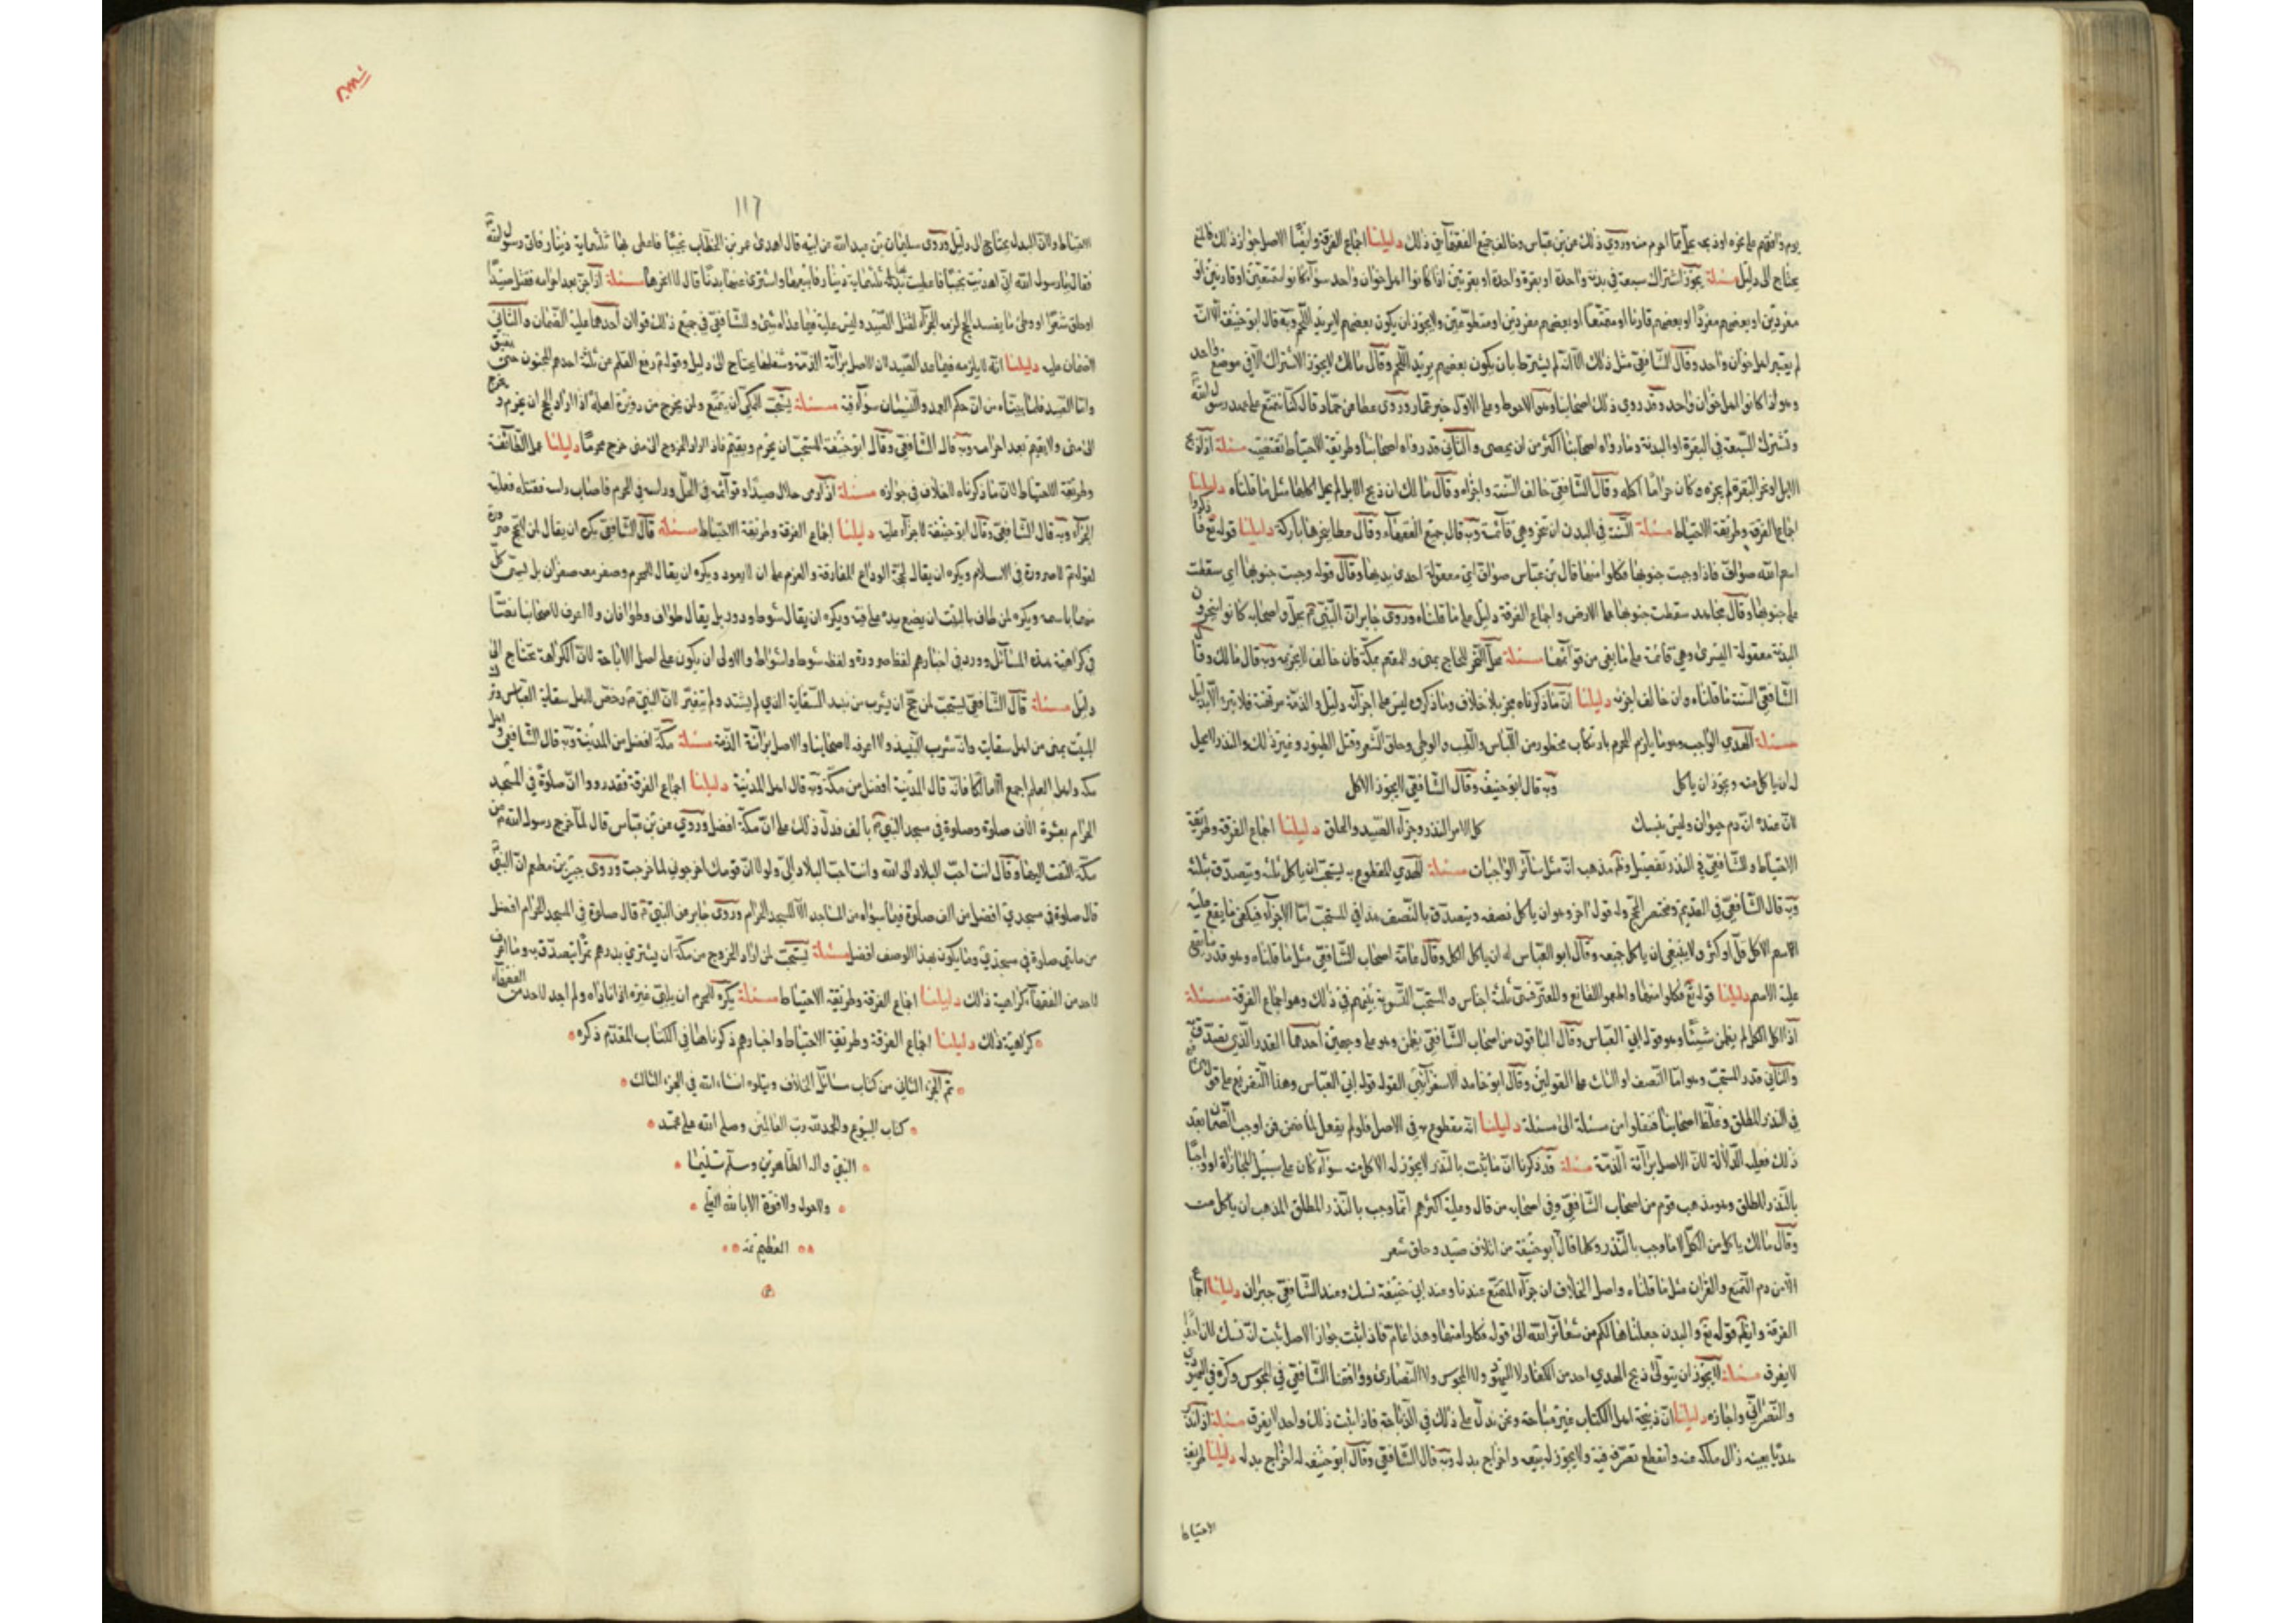 يوم وافقهم على نحره او ذبحه على ما احرم منه وروي ذلك عن بن عباس وخالف جميع الفقهآ في ذلك دليلنا اجماع الفرقة وايضًا الاصل جواز ذلك فالمنع
يحتاج الى دليل مسئلة يجوز اشتراك سبعة في بدنة واحدة او بقرة واحدة او بقرتين اذا كانوا اهل خوان واحد سوآ كانوا متمتعين او قارنين او
مفردين او بعضهم مفردًا او بعضهم قارنا او متمتعًا او بعضهم مفردين او متطوعين ولا يجوز ان يكون بعضهم يريد اللحم وبه قال ابو حنيفة الا انه
لم يعتبر اهل خوان واحد وقال الشافعي مثل ذلك الا انه لم يشترط بان يكون بعضهم يريد اللحم وقال مالك لا يجوز الاشتراك الا في موضع واحد
وهو اذا كانوا اهل خوان واحد وقد روي ذلك اصحابنا وهو الاحوط وعلى الاول خبر وروى عطا عن قال كنا نتمتع على عهد رسول الله
ونشترك السبعة في البقرة او البدنة وما رواه اصحابنا اكثر من ان يحصى والثاني قد رواه اصحابنا وطريقة الاحتياط تقتضيه مسئلة اذا ذبح
الابل او نحر البقرة لم يجزه وكان حرامًا اكله وقال الشافعي خالف السنة واجزاه وقال مالك ان ذبح الابل لم يحل اكلها مثل ما قلناه دليلنا
اجماع الفرقة وطريقة الاحتياط مسئلة السنة في البدن ان تنحر وهي قائمة وبه قال جميع الفقهآء وقال عطا ينحرها باركة دليلنا قوله تع فاذكروا
اسم الله صواف فاذا وجبت جنوبها فكلوا منها قال بن عباس صواف اي معقولة احدى يديها وقال قوله وجبت جنوبها اي سقطت
على جنوبها وقال مجاهد سقطت جنوبها على الارض واجماع الفرقة دليل على ما قلناه وروى جابر ان النبي واصحابه كانوا ينحرون
البدنة معقولة اليسرى وهي قائمة على ما بقي من قوائمها مسئلة محل النحر للحاج بمنى وللمعتمر بمكة فان خالف لا يجزيه وبه قال مالك وقال
الشافعي السنة ما قلناه وان خالف اجزئه دليلنا ان ما ذكرناه مجز بلا خلاف وما ذكروه ليس على اجزائه دليل والذمة مرتهنة فلا تبرء الا بدليل
مسئلة الهدي الواجب وهو ما يلزم المحرم بارتكاب محظور من اللباس والطيب والوطي وحلق الشعر وقتل الصيود وغير ذلك والنذر لا يحل
له ان ياكل منه ويجوز ان ياكل وبه قال ابو حنيفه وقال الشافعي لا يجوز الاكل
لان عنده انه دم جبران وليس بنسك كل الا من النذر وجزاء الصيد والحلق دليلنا اجماع الفرقة وطريقة
الاحتياط وللشافعي في النذر تفصيل ولم مذهب انه مثل سائر الواجبات مسئلة الهدي المتطوع به يستحب ان ياكل ثلثه ويتصدق بثلثه
وبه قال الشافعي في القديم ومختصر الحج وله قول اخر وهو ان ياكل نصفه ويتصدق بالنصف هذا في المستحب اما الاجزآء فيكفي ما يقع عليه
الاسم الاكل قل او كثر ولا ينبغي ان ياكل جميعه وقال ابو العباس له ان ياكل الكل وقال عامة اصحاب الشافعي مثل ما قلناه وهو قدر ما يقع
عليه الاسم دليلنا قوله تع فكلوا منها واطعموا القانع والمعتر فسمى ثلثة اجناس والمستحب التسوية بينهم في ذلك وهو اجماع الفرقة مسئلة
اذا اكل الكل لم يضمن شيئًا وهو قول ابي العباس وقال الباقون من اصحاب الشافعي يضمن وهو على وجهين احدهما القدر الذي يصدق به
والثاني قدر المستحب وهو اما النصف او الثلث على القولين وقال ابو حامد الاسفرايني القول قول ابي العباس وهذا التفريع على قوله
في النذر المطلق وغلط اصحابنا فنقلوا من مسئلة الى مسئلة دليلنا انه متطوع به في الاصل فلو لم يفعل لما ضمن فمن اوجب الضمان بعد
ذلك فعليه الدلالة لان الاصل برآئة الذمة مسئلة قد ذكرنا ان ما ثبت بالنذر لا يجوز له الاكل منه سوآء كان على سبيل المجازاة او واجبًا
بالنذر المطلق وهو مذهب قوم من اصحاب الشافعي وفي اصحابه من قال وعليه اكثرهم انما وجب بالنذر المطلق المذهب ان ياكل منه
وقال مالك ياكل من الكل الا ما وجب بالنذر وكلما قال ابو حنيفة من اتلاف صيد وحلق شعر
الا من دم التمتع والقران مثل ما قلناه واصل الخلاف ان جزآء المتمتع عندنا وعند ابي حنيفة نسك وعند الشافعي جبران دليلنا اجماع
الفرقة وايضًا قوله تع والبدن جعلناها لكم من شعائر الله الى قوله فكلوا منها وهذا عام فاذا ثبت جواز الاصل ثبت انه نسك لان احدًا
لا يفرق مسئلة لا يجوز ان يتولى ذبح الهدي احد من الكفار لا اليهود ولا المجوس ولا النصارى ووافقنا الشافعي في المجوس وكره في اليهودي
والنصراني واجازه دليلنا ان ذبيحة اهل الكتاب غير مباحة ونحن ندل على ذلك في الذباحة فاذا ثبت ذلك فواحد لا يفرق مسئلة اذا نذر
هديًا بعينه زال ملكه عنه وانقطع تصرفه فيه ولا يجوز له بيعه واخراج بدله وبه قال الشافعي وقال ابو حنيفه له اخراج بدله دليلنا طريقة
الاحتياط
١١٦
الاحتياط ولان البدل يحتاج الى دليل وروى سليمان بن عبد الله عن ابيه قال اهدى عمر بن الخطاب نجيبًا فاعطى بها ثلثماية دينار فاتى رسول الله
فقال يا رسول الله اني اهديت نجيبًا فاعطيت بها ثلثماية دينار فابيعها واشترى بثمنها بدنًا قال لا انحرها مسئلة اذا جن بعد احرامه فقتل صيدًا
او حلق شعرًا او وطئ ما يفسد الحج لزمه الجزآء لقتل الصيد وليس عليه فيما عداه شئ وللشافعي في جميع ذلك قولان احدهما عليه الضمان والثاني
لا ضمان عليه دليلنا انه لا يلزمه فيما عدا الصيد ان الاصل برآئة الذمة وشغلها يحتاج الى دليل وقوله رفع القلم عن ثلثة احدهم المجنون حتى يفيق
واما الصيد فلما بيناه من ان حكم العمد والنسيان سوآء فيه مسئلة يستحب للمكي ان يتمتع ولمن يخرج من دويرة اهله اذا اراد الحج ان يحرم ويخرج
الى منى ولا يقيم بعد احرامه وبه قال الشافعي وقال ابو حنيفة المستحب ان يحرم ويقيم فاذا اراد الخروج الى منى خرج محرمًا دليلنا عمل الطائفة
وطريقة الاحتياط لان ما ذكرناه لا خلاف في جوازه مسئلة اذا رمى حلال صيدًا وقوائمه في الحل وراسه في الحرم فاصاب راسه فقتله فعليه
الجزآء وبه قال الشافعي وقال ابو حنيفة لا جزآء عليه دليلنا اجماع الفرقة وطريقة الاحتياط مسئلة قال الشافعي يكره ان يقال لمن لم يحج صرورة
لقوله لا صرورة في الاسلام ويكره ان يقال لحجة الوداع المفارقة والعزم على ان لا يعود ويكره ان يقال للمحرم وصفر معه صفران بل لسمى كل
منهما باسمه ويكره لمن طاف بالبيت ان يضع يده على فيه ويكره ان يقال شوط ودور بل يقال طواف وطوافان ولا اعرف لاصحابنا نصًا
في كراهية هذه المسائل وورد في اخبارهم لفظ صرورة ولفظ شوط واشواط والاولى ان يكون على اصل الاباحة لان الكراهة تحتاج الى
دليل مسئلة قال الشافعي يستحب لمن حج ان يشرب من نبيذ السقاية الذي لم يشتد ولم يتغير لان النبي رخص لاهل سقاية العباس وترك
المبيت بمنى من اهل سقايته وانه شرب النبيذ ولا اعرفه لاصحابنا والاصل برآئة الذمة مسئلة مكة افضل من المدينة وبه قال الشافعي واهل
مكه واهل العلم اجمع الا مالكا فانه قال المدينة افضل من مكة وبه قال اهل المدينة دليلنا اجماع الفرقة فقد رووا ان صلوة في المسجد
الحرام بعشرة الاف صلوة وصلوة في مسجد النبي بالف فدل ذلك على ان مكة افضل وروي عن بن عباس قال لما خرج رسول الله من
مكة التفت اليها وقال انت احب البلاد الى الله وانت احب البلاد الي ولولا ان قومك اخرجوني لما خرجت وروى جبير بن مطعم ان النبي
قال صلوة في مسجدي افضل من الف صلوة فيما سواه من المساجد الا المسجد الحرام وروى جابر عن النبي قال صلوة في المسجد الحرام افضل
من مايتي صلوة في مسجدي وما يكون بهذا الوصف افضل مسئلة يستحب لمن اراد الخروج من مكة ان يشتري بدرهم تمرًا يتصدق به وما اعرف
لاحد من الفقهآء كراهية ذلك دليلنا اجماع الفرقة وطريقة الاحتياط مسئلة يكره للمحرم ان يلبي غيره اذا ناداه ولم اجد لاحد من الفقهآء
كراهية ذلك دليلنا اجماع الفرقة وطريقة الاحتياط واخبارهم ذكرناها في الكتاب المقدم ذكره
تم الجزء الثاني من كتاب مسائل الخلاف ويتلوه انشاء الله في الجزء الثالث
كتاب البيوع والحمد لله رب العالمين وصلى الله على محمد
النبي واله الطاهرين وسلم تسليما
ولا حول ولا قوة الا بالله العلي
العظيم